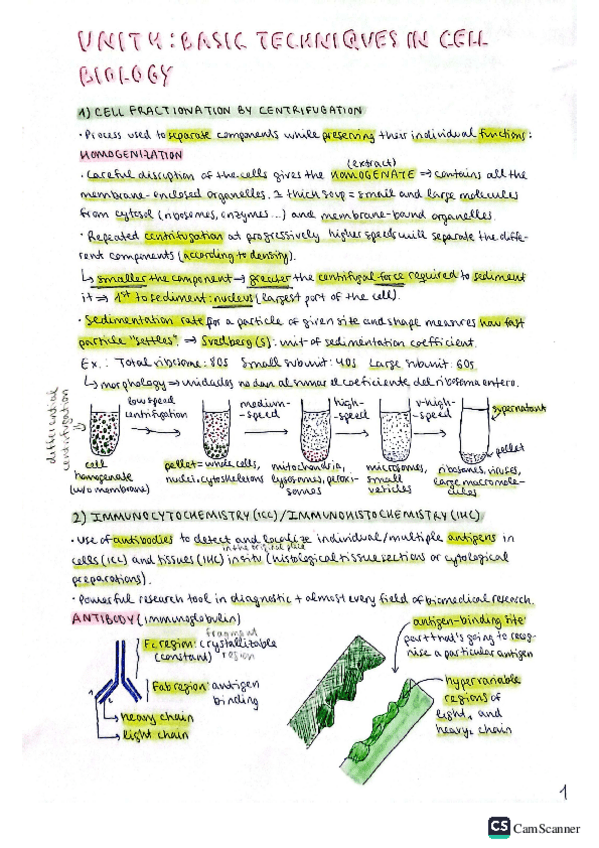 UNIT 4: BASIC TECHNIQUES IN CELL
BIOLOGY
1) CELL FRACTIONATION BY CENTRIFUGATION
· Process used to separate components while preserving their individual functions:
HOMOGENIZATION
(extract)
· Careful disruption of the cells gives the HOMOGENATE ⇒ contains all the
membrane-enclosed organelles. thick soup = small and large molecules
from cytosol (ribosomes, enzymes...) and membrane-bound organelles.
· Repeated centrifugation at progressively higher speeds will separate the diffe-
rent components (according to density).
↳ smaller the component → greater the centrifugal force required to sediment
it ⇒ 1st to sediment: nucleus (largest part of the cell).
· Sedimentation rate for a particle of given size and shape measures how fast
particle "settles" ⇒ Svedberg (S): unit of sedimentation coefficient.
Ex.: Total ribosome: 80S Small subunit: 40S Large subunit: 60S
↳ morphology ⇒ unidades no dan al sumar el coeficiente del ribosoma entero.
differential
centrifugation
low speed
centrifugation
medium-
-speed
high-
-speed
v-high-
-speed
supernatant
pellet
cell
homogenate
(w/o membrane)
pellet = whole cells,
nuclei, cytoskeletons
mitochondria,
lysosomes, peroxi-
somes
microsomes,
small
vesicles
ribosomes, viruses,
large macromole-
cules
2) IMMUNOCYTOCHEMISTRY (ICC) / IMMUNOHISTOCHEMISTRY (IHC)
· Use of antibodies to detect and localize individual/multiple antigens in
in the original place
cells (ICC) and tissues (IHC) in situ (histological tissue sections or cytological
preparations).
· Powerful research tool in diagnostic + almost every field of biomedical research.
ANTIBODY (immunoglobulin)
fragment
Fc region: crystallitable
(constant) region
Fab region: antigen
binding
heavy chain
light chain
antigen-binding site:
part that's going to recog-
nise a particular antigen
hypervariable
regions of
light, and
heavy, chain
1
CS CamScanner